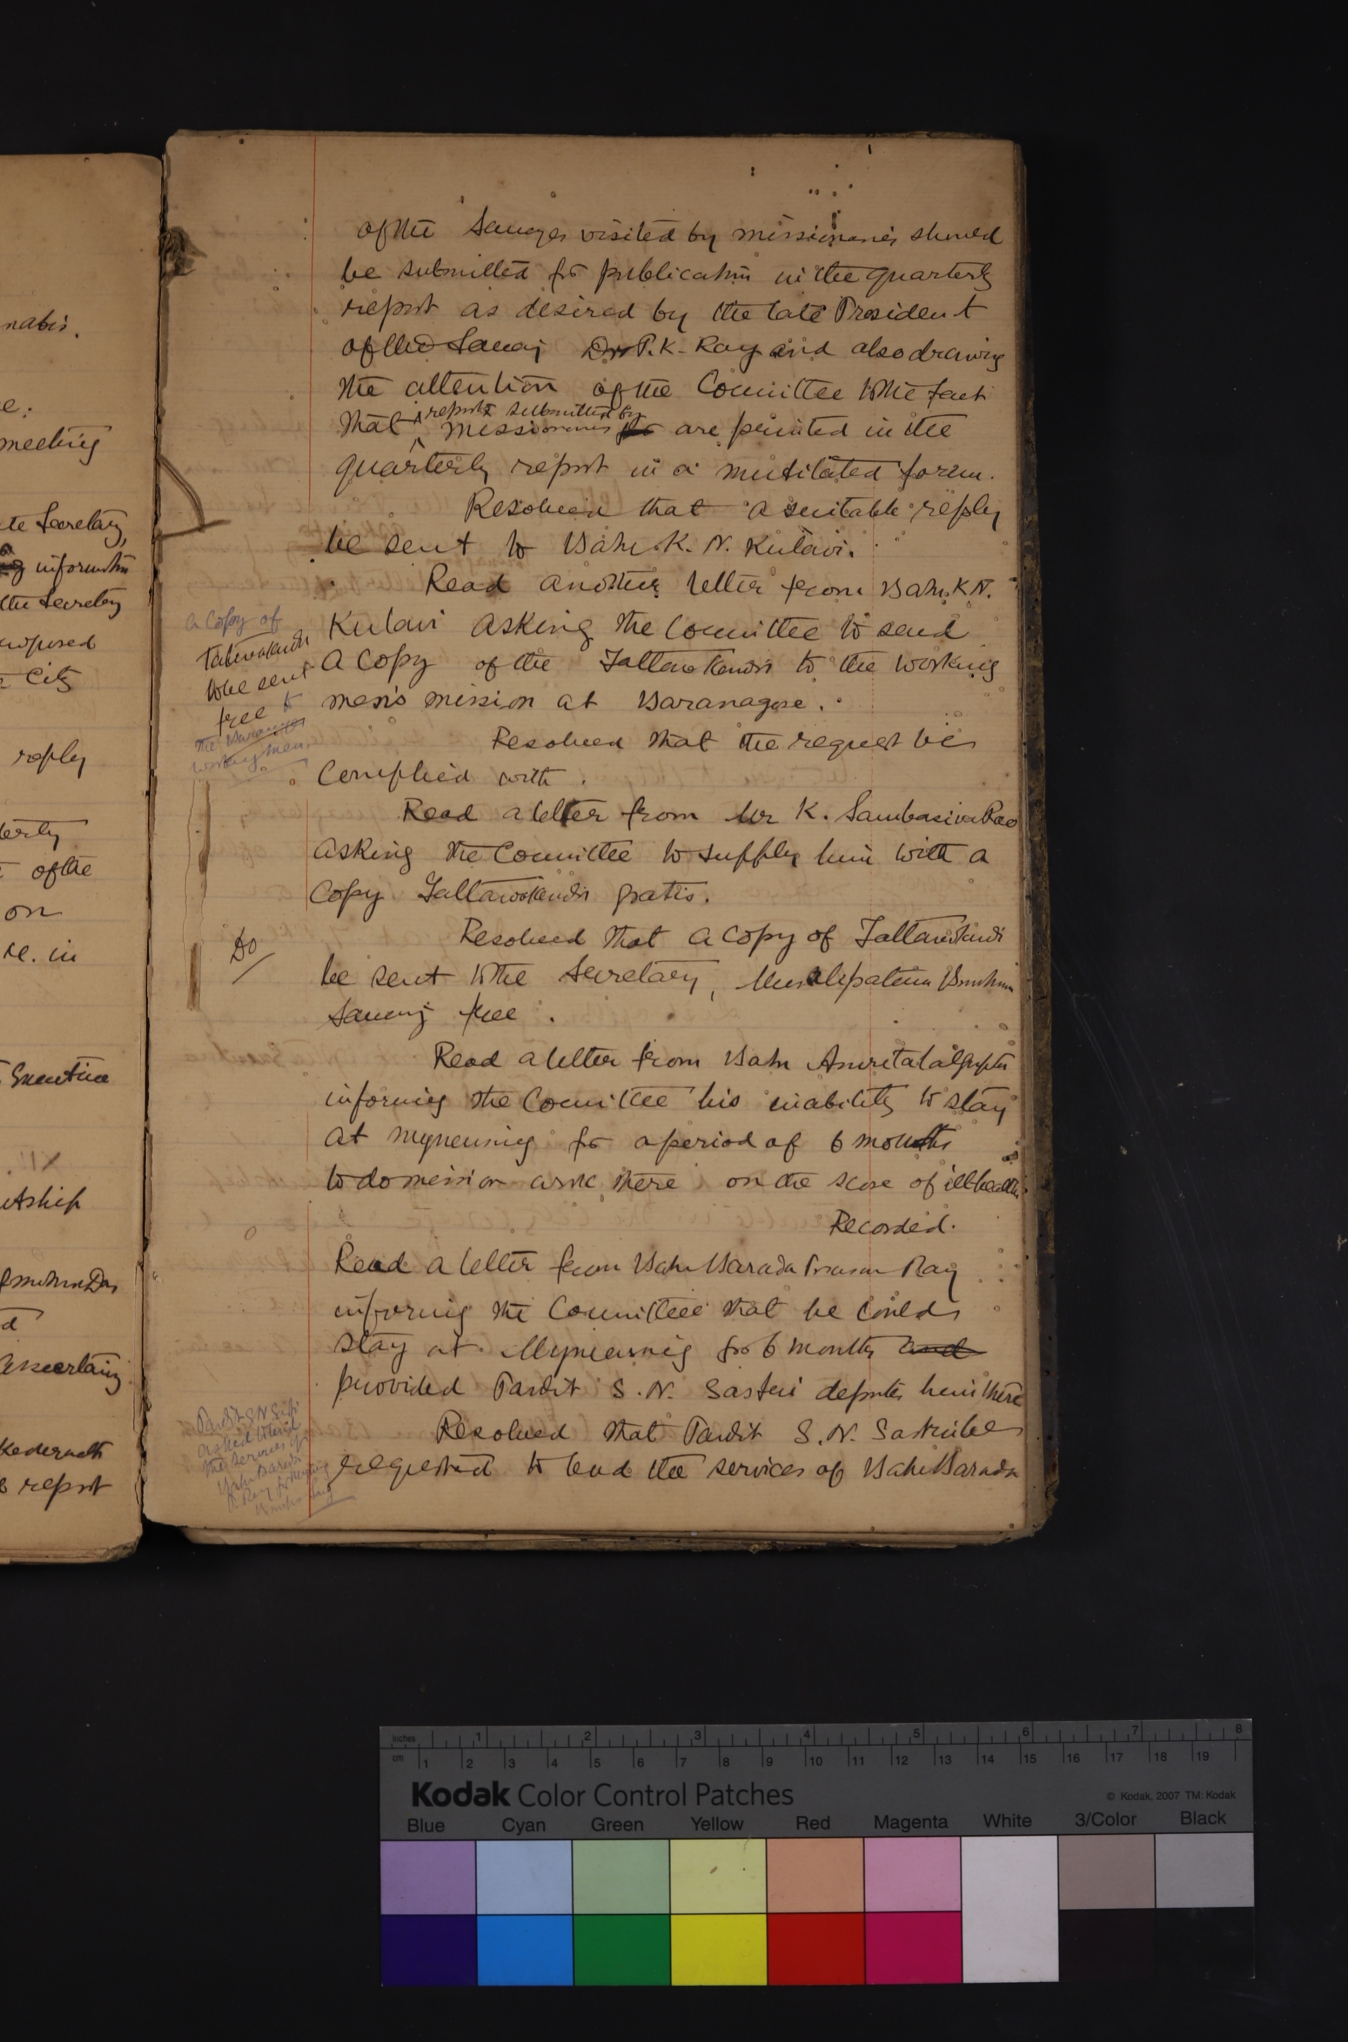 nabis.
e.
meeting
te Secretary,
information
the Secretary
proposed
City
reply
terly
of the
on
re. in
Executive
XI.
Das
d
ascertaing
Kedernath
s report
of the Samajes visited by missionaries should
be submitted for publication in the quarterly
report as desired by the late President
of the Samaj Dr P.K. Ray and also drawing
the attention of the Committee to the fact
that reports submitted by missionaries are printed in the
quarterly report in a mutilated form.
Resolved that a suitable reply
be sent to Babu K. N. Kulavi.
Read another letter from Babu K N.
Kulavi asking the Committee to send
a copy of the Tattwakaumudi to the working
men's mission at Baranagore.
Resolved that the request be
complied with.
Read a letter from Mr K. Sambasiva Rao
asking the Committee to supply him with a
copy Tattwakaumudi gratis.
Resolved that a copy of Tattwakaumudi
be sent to the Secretary, Muslipatam Brahmo
Samaj free.
Read a letter from Babu Amritalal Gupta
informing the Committee his inability to stay
at Mymensing for a period of 6 months
to do mission work there on the score of ill health.
Recorded.
Read a letter from Babu Barada Prasanna Ray
informing the Committee that he could
stay at Mymensing for 6 months and
provided Pandit S. N. Sastri deputes him there
Resolved that Pandit S. N. Sastri be
requested to lend the services of Babu Barada
a copy of
to be sent
free to
the
working men.
Do
Pandit S N
asked to lend
the services of
Babu Barada
P Ray
Kodak Color Control Patches
© Kodak, 2007 TM: Kodak
inches 1 2 3 4 5 6 7 8
cm 1 2 3 4 5 6 7 8 9 10 11 12 13 14 15 16 17 18 19
Blue Cyan Green Yellow Red Magenta White 3/Color Black